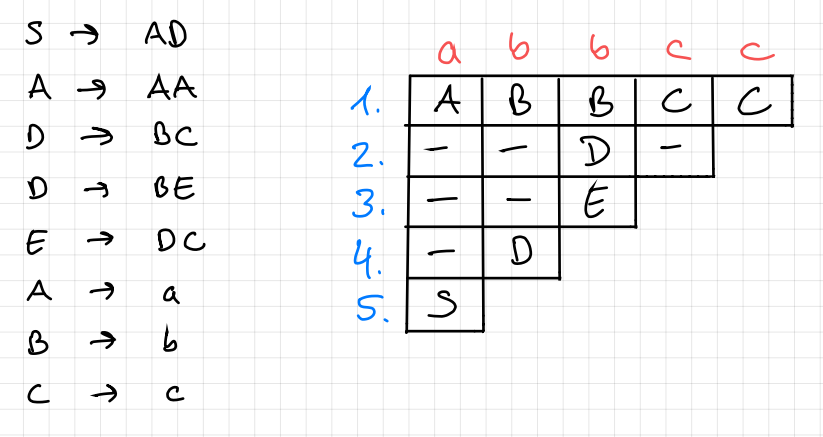 S → AD
A → AA
D → BC
D → BE
E → DC
A → a
B → b
C → c
a b b c c
1. A B B C C
2. – – D –
3. – – E
4. – D
5. S